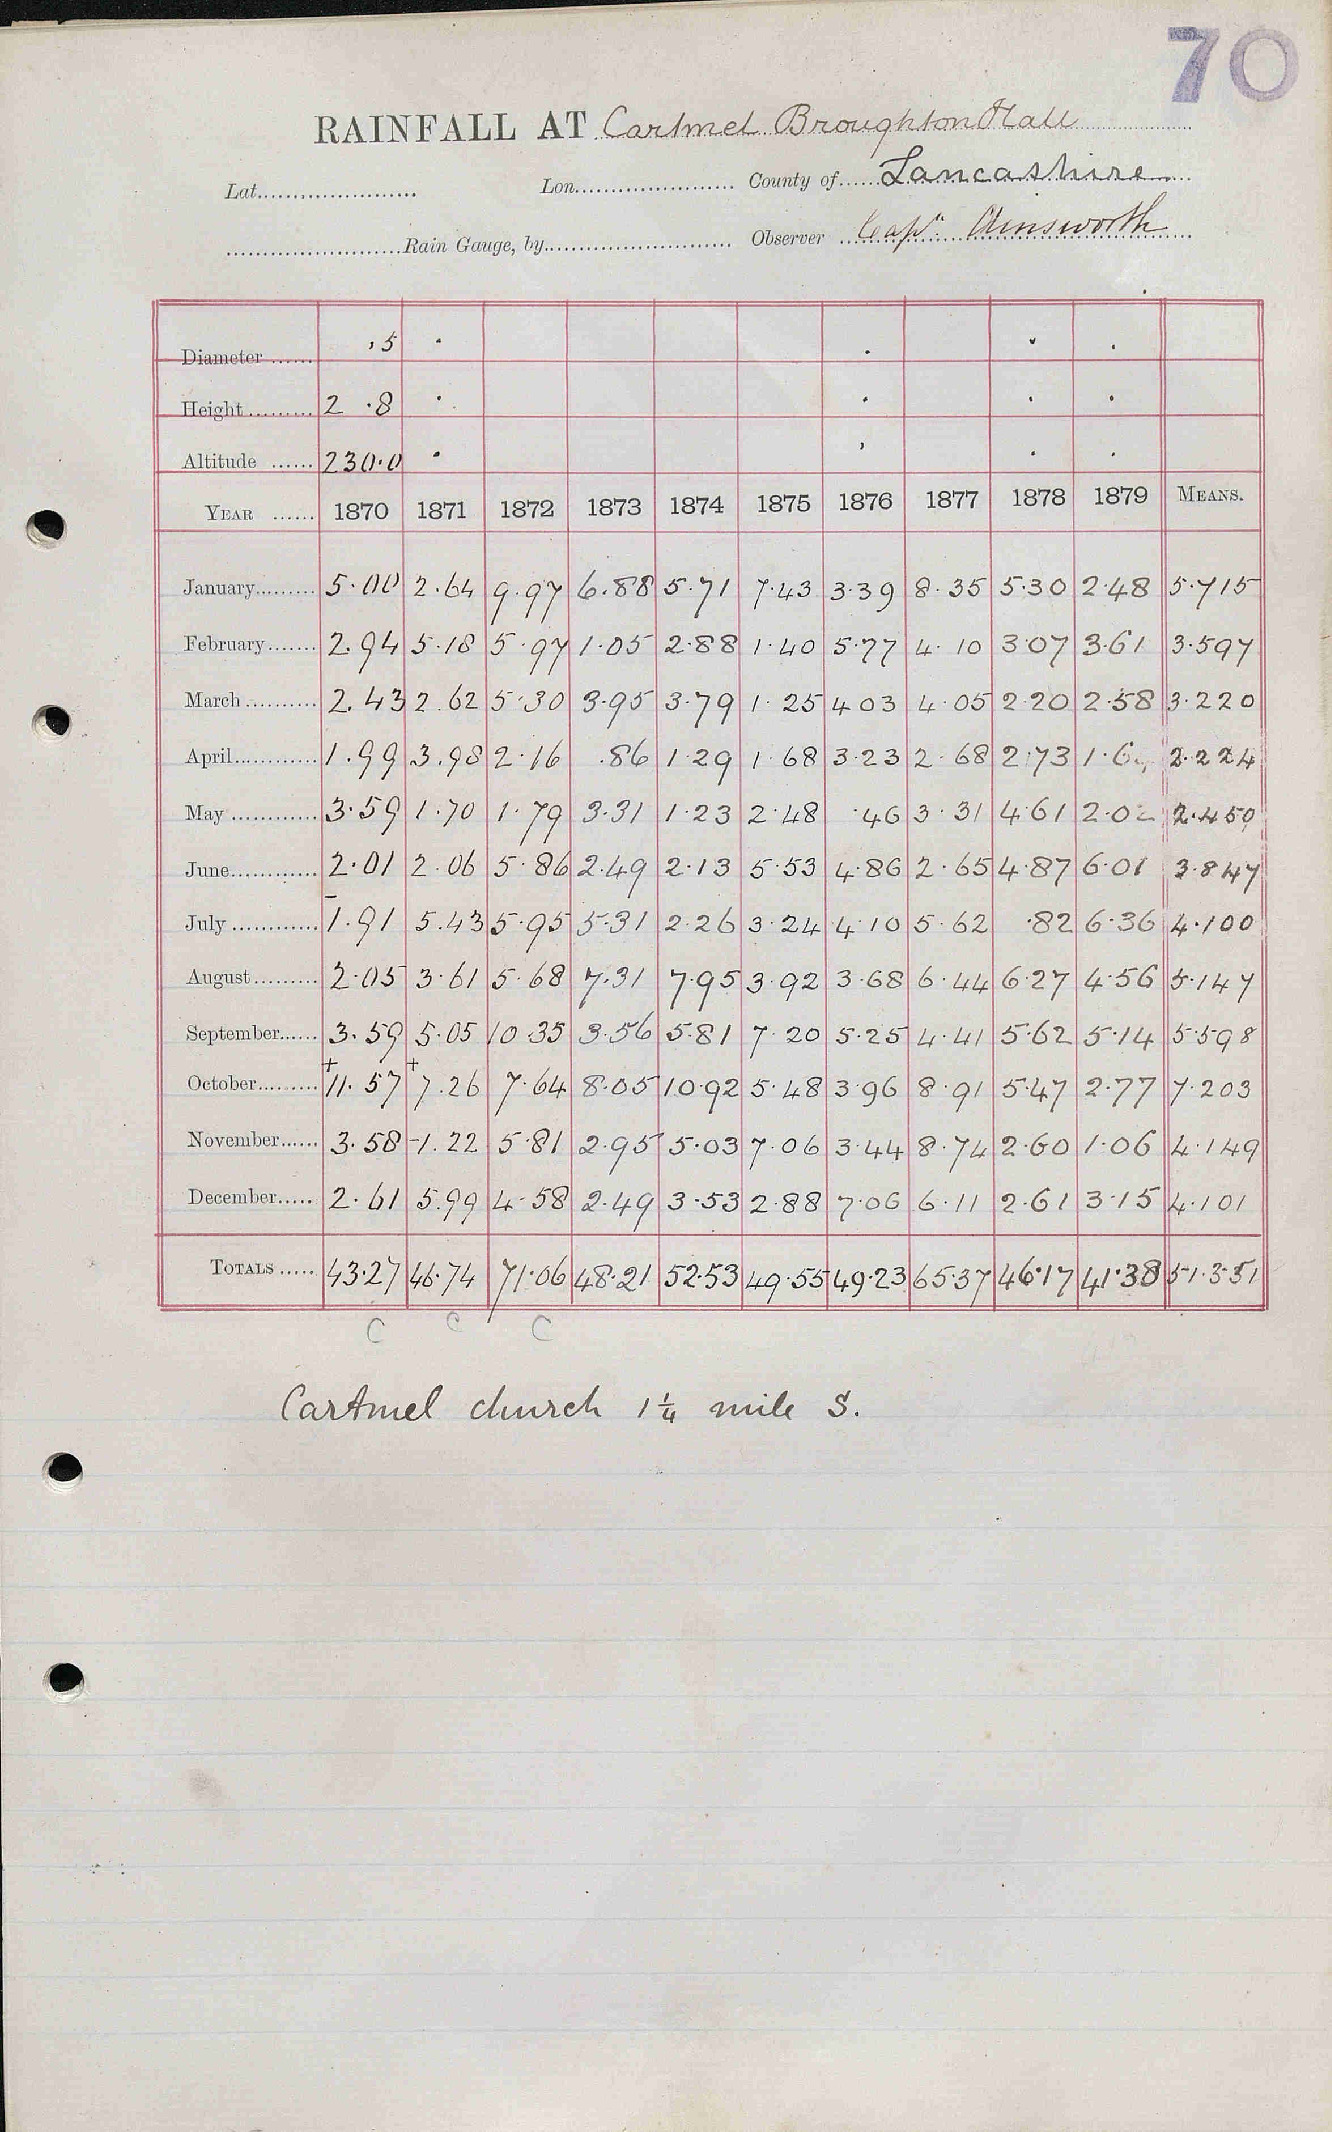 70
RAINFALL AT Cartmel Broughton Hall
Lat. Lon. County of Lancashire
Rain Gauge, by Observer Capt. Ainsworth
Diameter ,5
Height 2 .8
Altitude 230.0
YEAR 1870 1871 1872 1873 1874 1875 1876 1877 1878 1879 MEANS.
January 5.00 2.64 9.97 6.88 5.71 7.43 3.39 8.35 5.30 2.48 5.715
February 2.94 5.18 5.97 1.05 2.88 1.40 5.77 4.10 3.07 3.61 3.597
March 2.43 2.62 5.30 3.95 3.79 1.25 4.03 4.05 2.20 2.58 3.220
April 1.99 3.98 2.16 .86 1.29 1.68 3.23 2.68 2.73 1.64 2.224
May 3.59 1.70 1.79 3.31 1.23 2.48 .46 3.31 4.61 2.02 2.450
June 2.01 2.06 5.86 2.49 2.13 5.53 4.86 2.65 4.87 6.01 3.847
July 1.91 5.43 5.95 5.31 2.26 3.24 4.10 5.62 .82 6.36 4.100
August 2.05 3.61 5.68 7.31 7.95 3.92 3.68 6.44 6.27 4.56 5.147
September 3.59 5.05 10.35 3.56 5.81 7.20 5.25 4.41 5.62 5.14 5.598
October +11.57 +7.26 7.64 8.05 10.92 5.48 3.96 8.91 5.47 2.77 7.203
November 3.58 -1.22 5.81 2.95 5.03 7.06 3.44 8.74 2.60 1.06 4.149
December 2.61 5.99 4.58 2.49 3.53 2.88 7.06 6.11 2.61 3.15 4.101
TOTALS 43.27 46.74 71.06 48.21 52.53 49.55 49.23 65.37 46.17 41.38 51.351
C C C
Cartmel church 1¼ mile S.